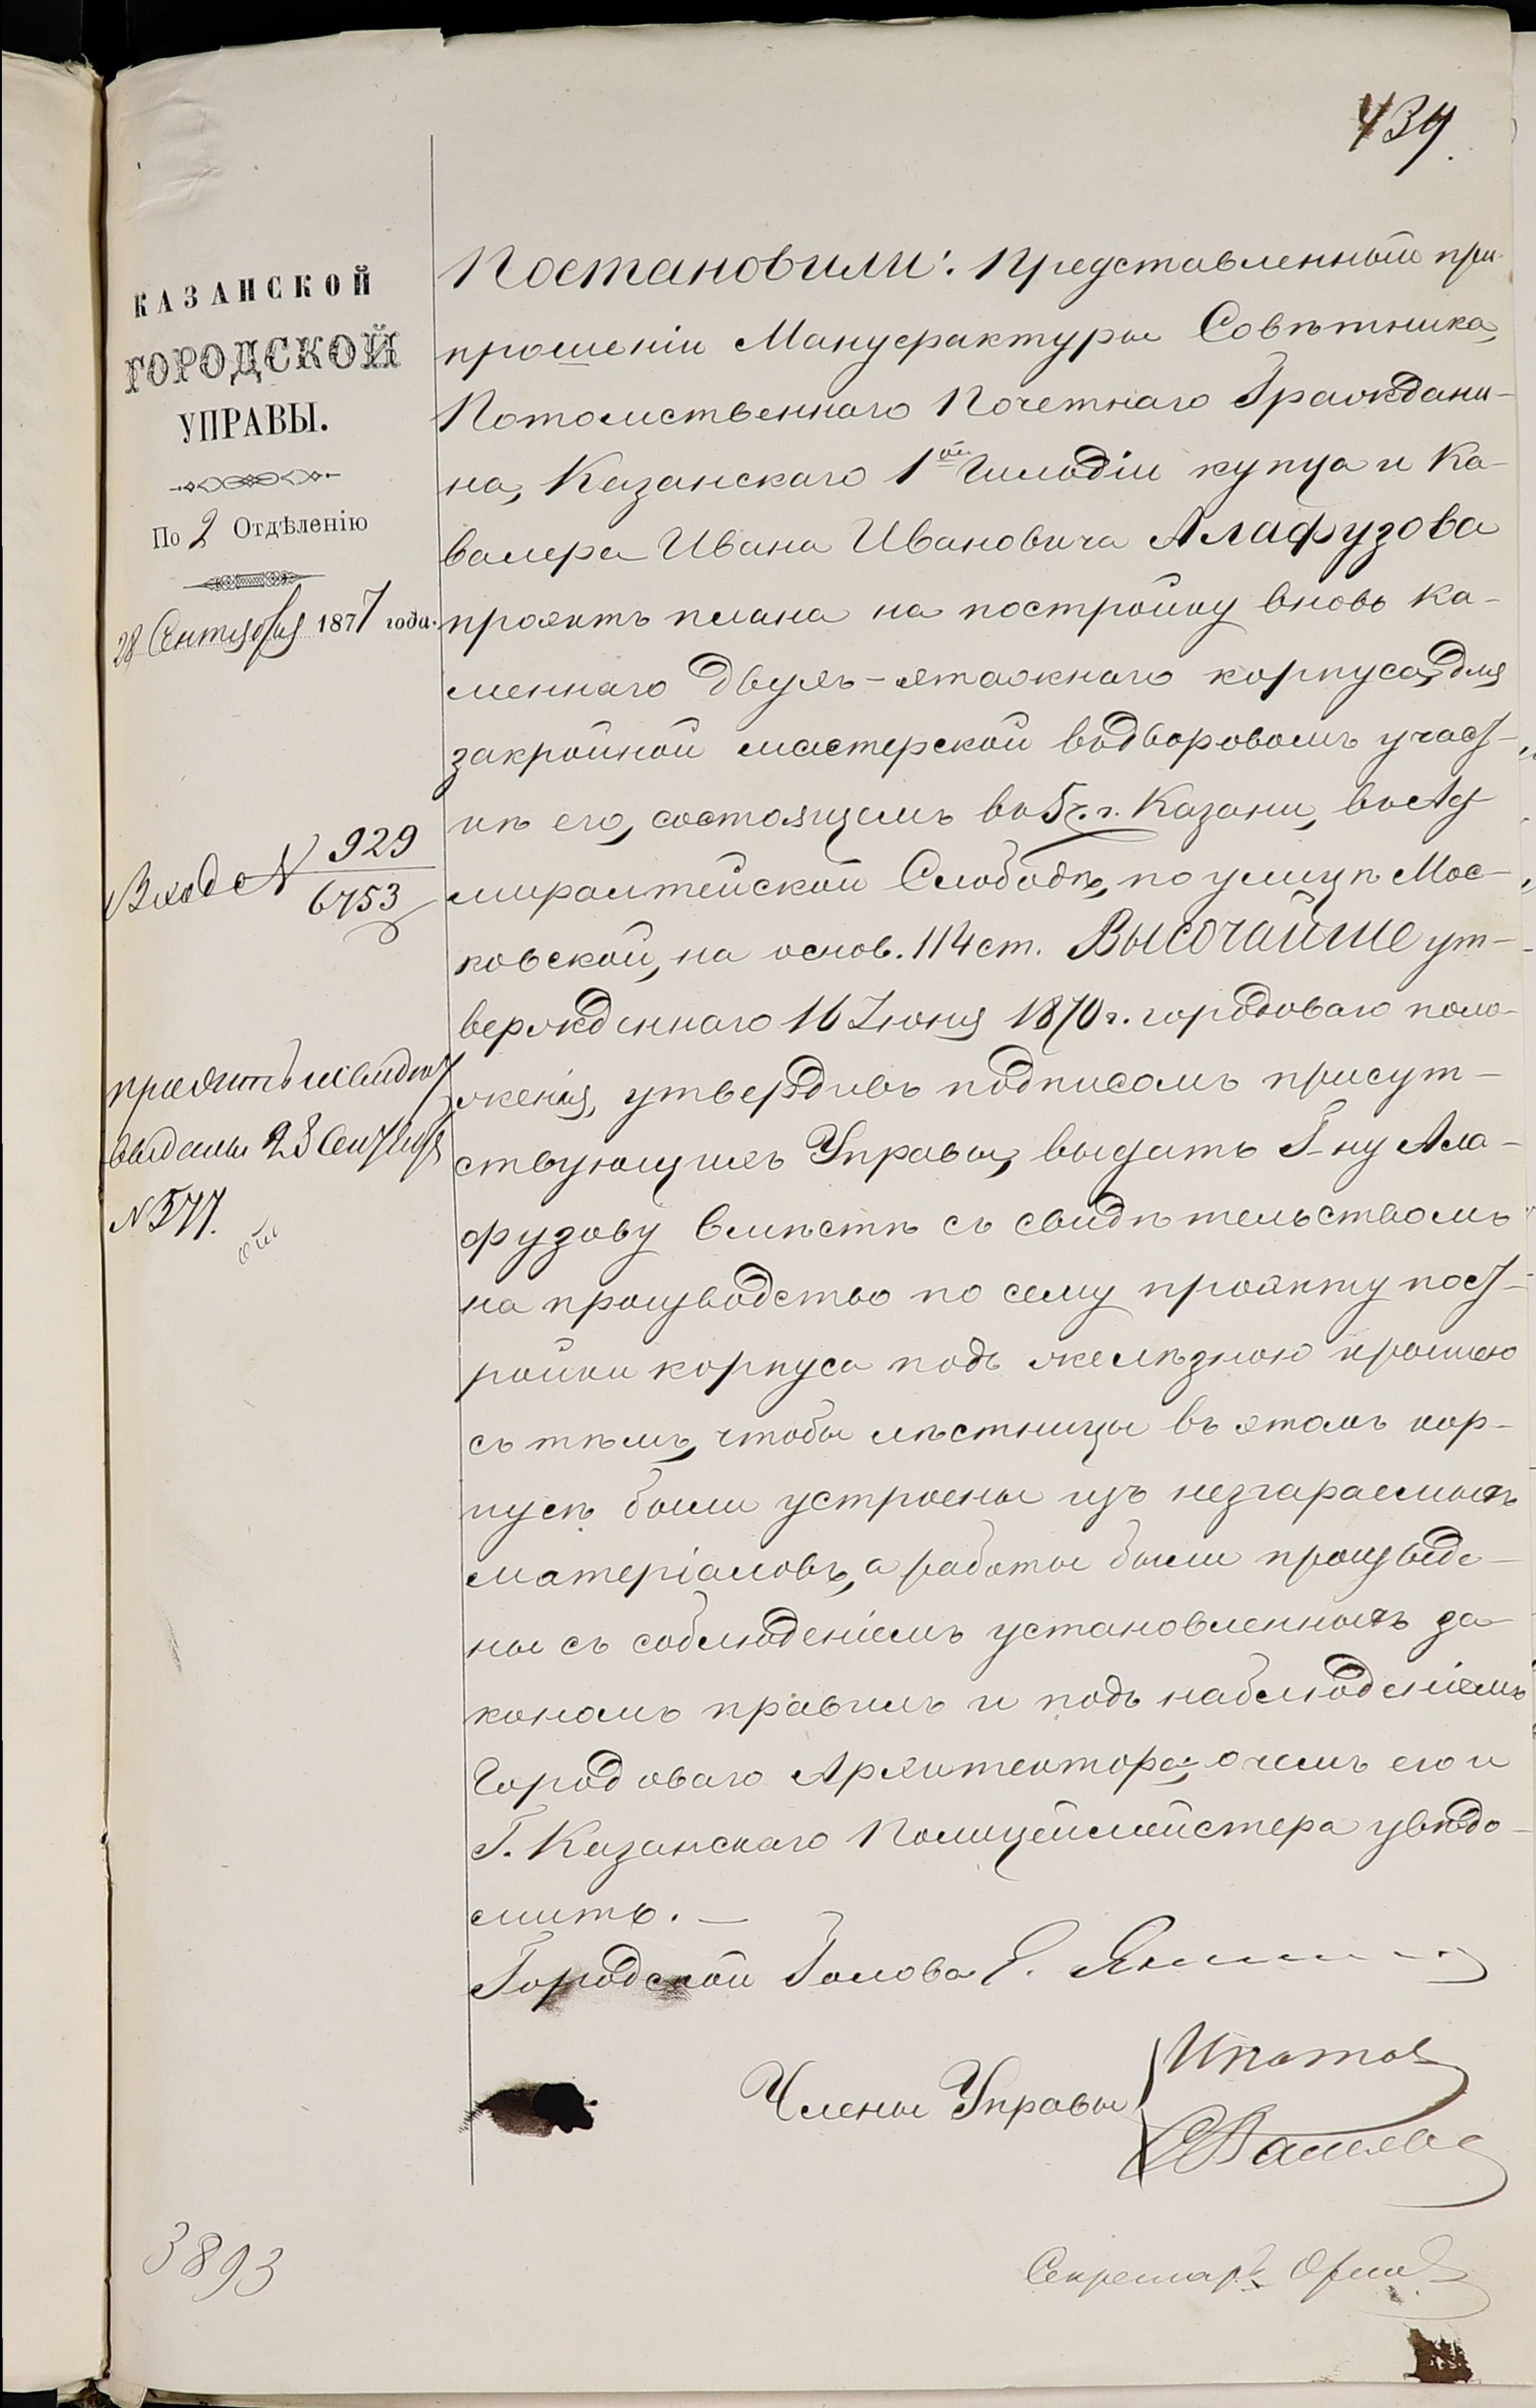 439.
КАЗАНСКОЙ
ГОРОДСКОЙ
УПРАВЫ.
По 2 Отдѣленію
28 Сентября 1877 года.
Вход № 929
6753
проэктъ и свидѣт
выданы 23 Сентября
№ 577.
Постановили: Представленный при
прошеніи Мануфактуры Совѣтника,
Потомственнаго Почетнаго Граждани-
на, Казанскаго 1ой Гильдіи купца и Ка-
валера Ивана Ивановича Алафузова
проэктъ плана на постройку вновь ка-
меннаго двухъ-этажнаго корпуса, для
закройной мастерской въ дворовомъ участ-
кѣ его, состоящемъ въ 5 ч. г. Казани, въ Ад-
миралтейской Слободѣ, по улицѣ Мос-
ковской, на основ. 114 ст. ВЫСОЧАЙШЕ ут-
вержденнаго 16 Іюня 1870 г. городоваго поло-
женія, утвердивъ подписомъ присут-
ствующихъ Управы, выдать Г-ну Ала-
фузову вмѣстѣ съ свидѣтельствомъ
на производство по сему проэкту пост-
ройки корпуса подъ желѣзною крышею
съ тѣмъ, чтобы лѣстницы въ этомъ кор-
пусѣ были устроены изъ незгараемыхъ
матеріаловъ, а работы были произведе-
ны съ соблюденіемъ установленныхъ за-
кономъ правилъ и подъ наблюденіемъ
Городоваго Архитектора; о чемъ его и
Г. Казанскаго Полицеймейстера увѣдо-
мить. —
Городской Голова Е. Янишевскій
Члены Управы
Ипатов
Секретарь Орлов
3893